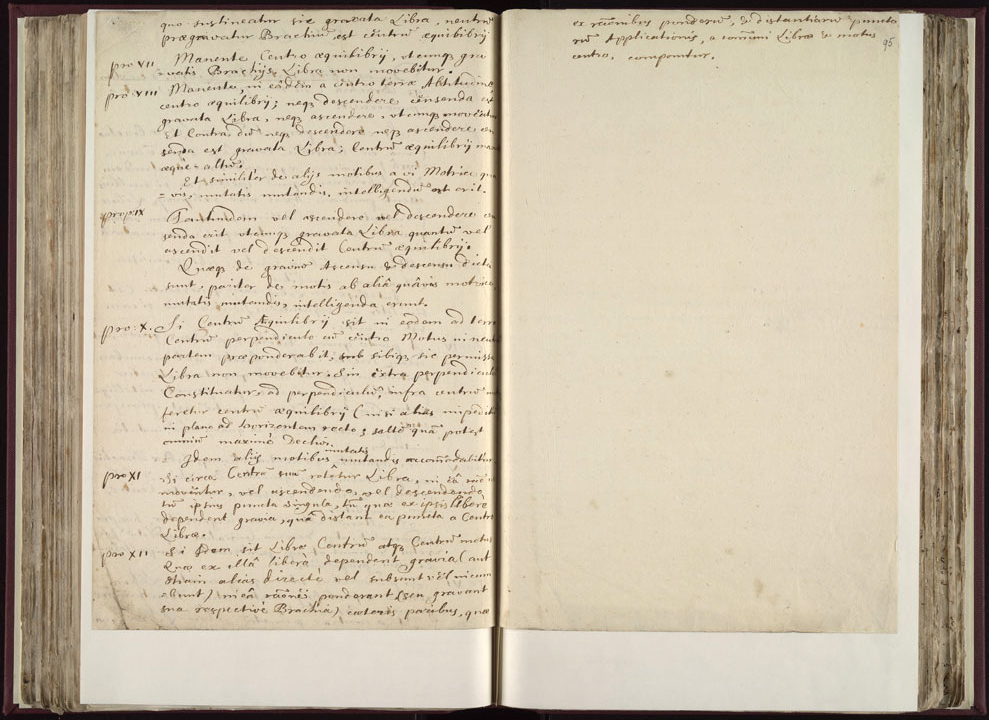 quo sustineatur sic gravata Libra, neutrū
prægravatur Brachiū, est centrū æquilibrij
pro VII Manente Centro æquilibrij, utcunqꝫ gra-
=vatis Brachijs Libra non movebitur.
pro VIII Manente, in eâdem a centro terræ Altitudine
centro æquilibrij; neqꝫ descendere censenda est
gravata Libra, neqꝫ ascendere, utcunqꝫ moveatur
Et Contra, dū neqꝫ descendere neqꝫ ascendere cen
senda est gravata Libra; Centrū æquilibrij
æque altū.
Et similiter de alijs motibus a vi Motrice qua
=vis, mutatis mutandis, intelligendū est erit.
prop: IX Tantundem vel ascendere vel descendere cen
senda erit utcunqꝫ gravata Libra quantū vel
ascendit vel descendit Centrū æquilibrij.
Quæqꝫ de graviū Ascensu & descensu dicta
sunt, pariter de motis ab aliâ quâvis motrice
mutatis mutandis, intelligenda erunt.
pro: X. Si Centrū Æquilibrij sit in eodem ad terræ
Centrū perpendiculo cū centro Motus in neut
partem præponderabit, sub sibiqꝫ sic permissa
Libra non movebitur. Sin extra perpendiculū
Constituatur, ad perpendiculū, infra centrū
feretur centrū æquilibrij (nisi alias impedit
in plano ad horizontem recto; saltē quā potest
omniū maximè Declivi.
Idem alijs motibus mutatis mutandis accomodabitur.
pro XI Si circa Centrū suū rotêtur Libra, in eâ
moventur, vel ascendendo, vel descendendo
tū ipsius puncta singula, tū quæ ex ipsis liberè
dependent gravia, quâ distant ea puncta a Centro
Libræ.
pro XII Si Idem sit Libræ Centrū atqꝫ Centrū motus
Quæ ex illâ liberè dependent gravia (aut
etiam alias directè vel subsunt vel incum
=bunt) in eâ ponderant (seu gravant
sua respective Brachia) cæteris paribus, quæ
95
ex rationibus ponderū, & distantiarū puncto
rū Applicationis, a comuni Libræ & motus
centro, componitur.